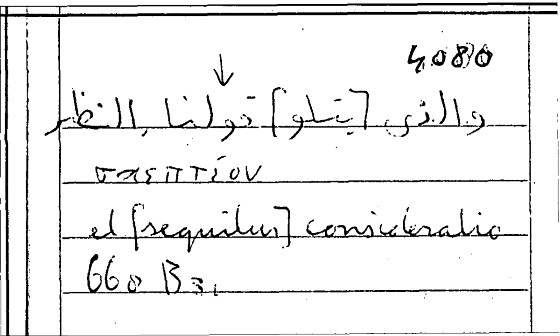 4080
والذى [يتلو] قولنا النظر
σκεπτέον
et [sequitur] consideratio
660 B 31